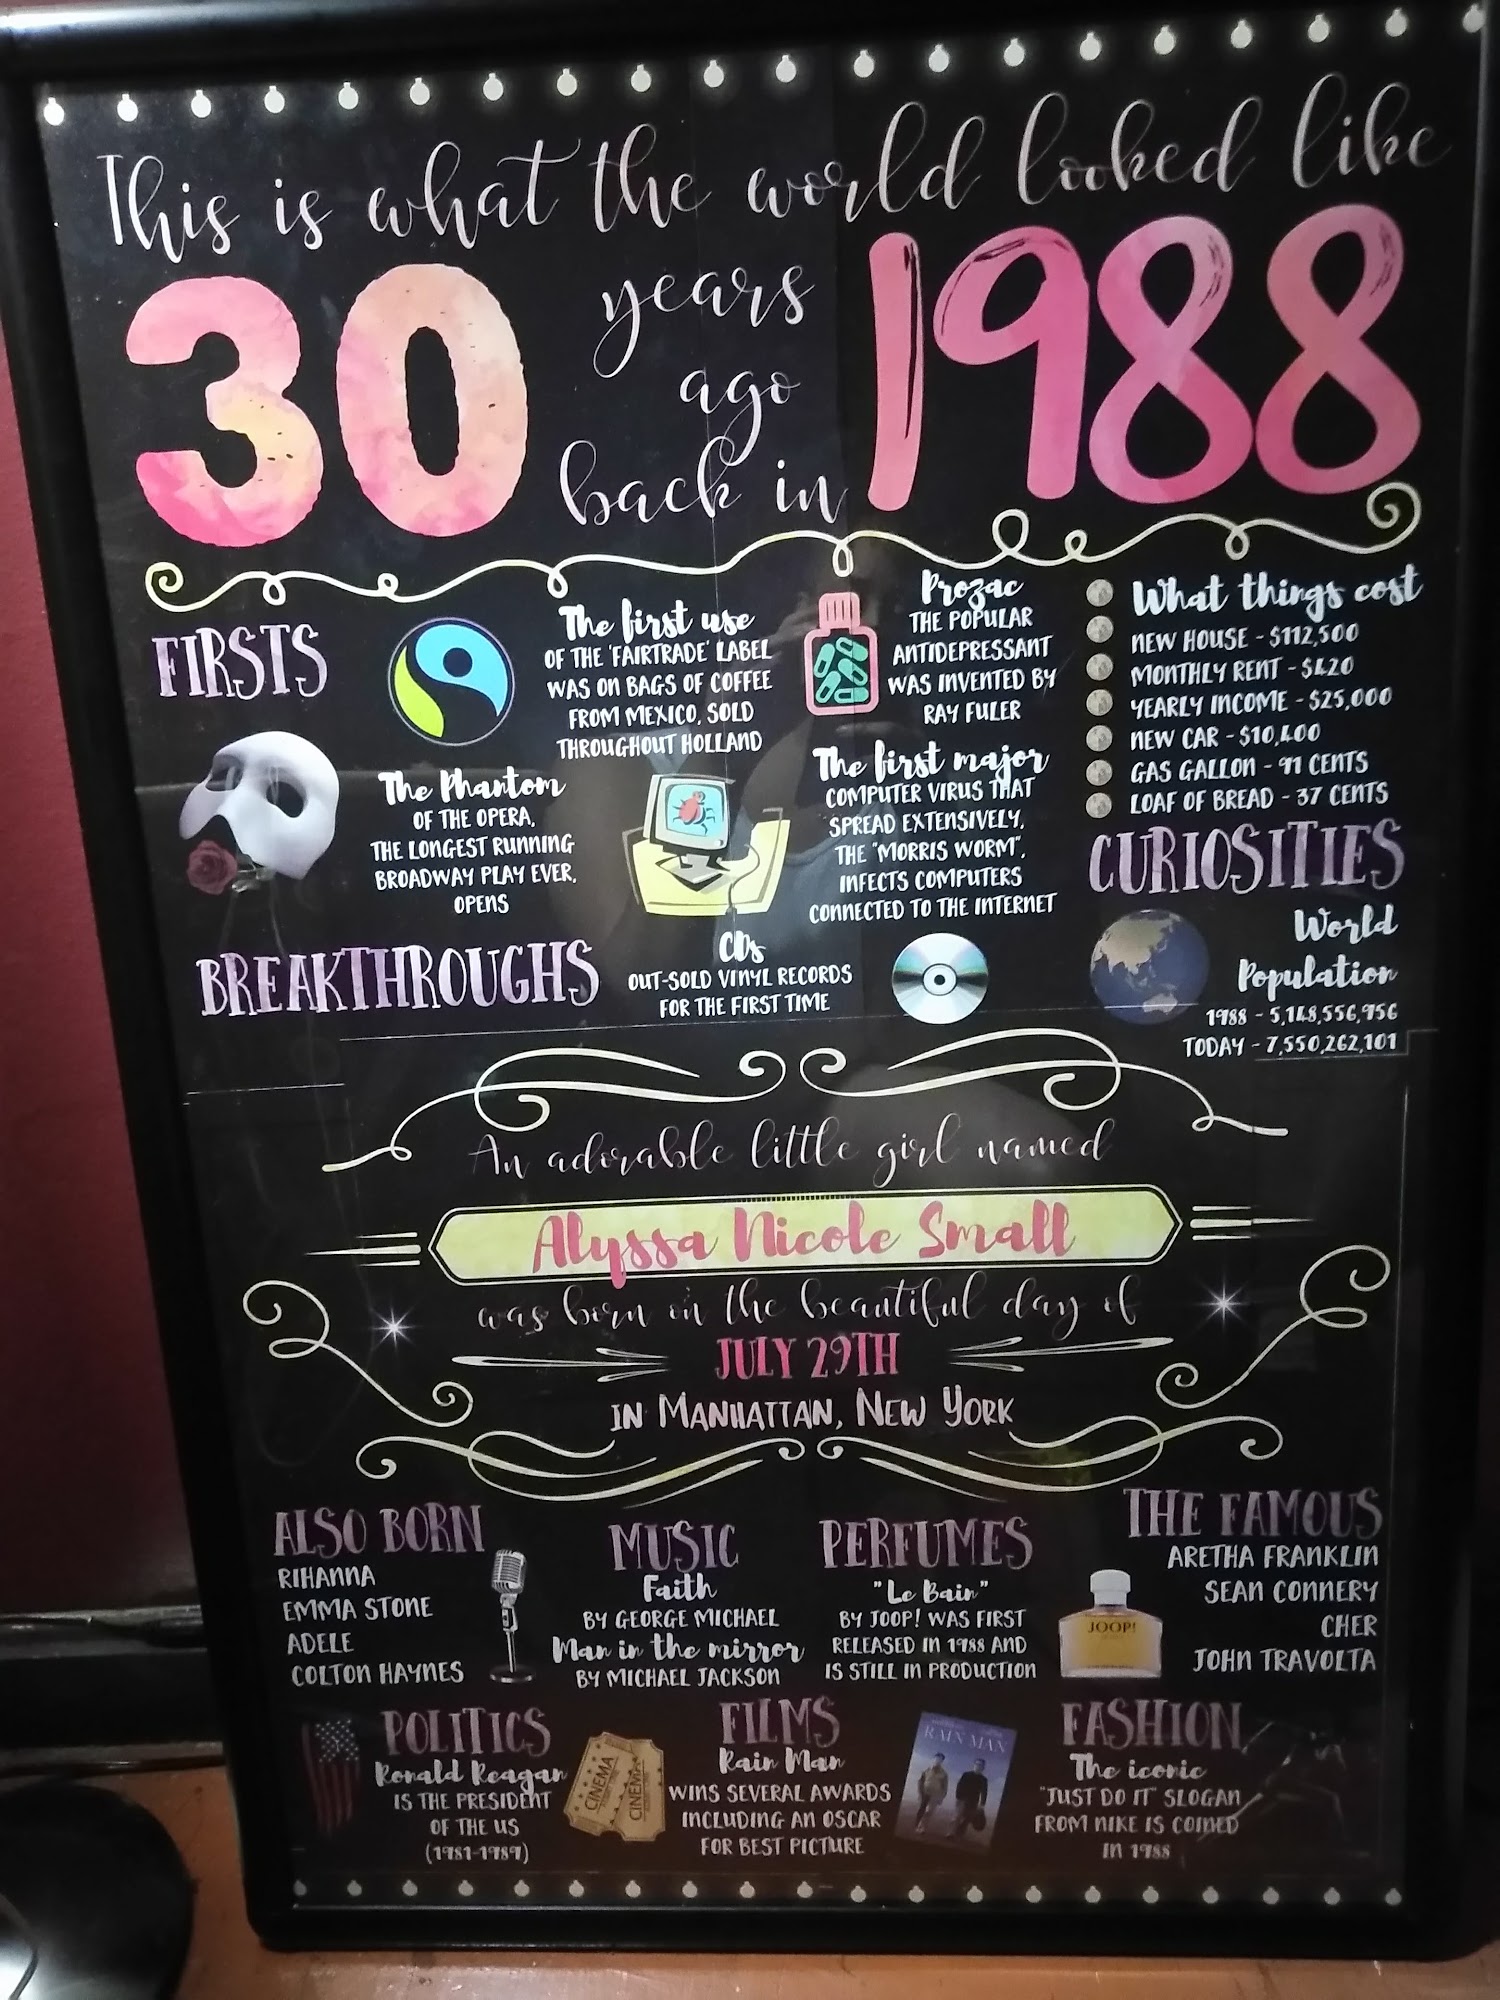 This is what the world looked like
30 years ago back in 1988
FIRSTS
The first use
OF THE 'FAIRTRADE' LABEL
WAS ON BAGS OF COFFEE
FROM MEXICO, SOLD
THROUGHOUT HOLLAND
Prozac
THE POPULAR
ANTIDEPRESSANT
WAS INVENTED BY
RAY FULER
What things cost
NEW HOUSE - $112,500
MONTHLY RENT - $420
YEARLY INCOME - $25,000
NEW CAR - $10,400
GAS GALLON - 91 CENTS
LOAF OF BREAD - 37 CENTS
The Phantom
OF THE OPERA,
THE LONGEST RUNNING
BROADWAY PLAY EVER,
OPENS
The first major
COMPUTER VIRUS THAT
SPREAD EXTENSIVELY,
THE "MORRIS WORM",
INFECTS COMPUTERS
CONNECTED TO THE INTERNET
BREAKTHROUGHS
CDs
OUT-SOLD VINYL RECORDS
FOR THE FIRST TIME
CURIOSITIES
World
Population
1988 - 5,148,556,956
TODAY - 7,550,262,101
An adorable little girl named
Alyssa Nicole Small
was born on the beautiful day of
JULY 29TH
IN MANHATTAN, NEW YORK
ALSO BORN
RIHANNA
EMMA STONE
ADELE
COLTON HAYNES
MUSIC
Faith
BY GEORGE MICHAEL
Man in the mirror
BY MICHAEL JACKSON
PERFUMES
"Le Bain"
BY JOOP! WAS FIRST
RELEASED IN 1988 AND
IS STILL IN PRODUCTION
JOOP!
THE FAMOUS
ARETHA FRANKLIN
SEAN CONNERY
CHER
JOHN TRAVOLTA
POLITICS
Ronald Reagan
IS THE PRESIDENT
OF THE US
(1981-1989)
CINEMA
CINEMA
FILMS
Rain Man
WINS SEVERAL AWARDS
INCLUDING AN OSCAR
FOR BEST PICTURE
RAIN MAN
FASHION
The iconic
"JUST DO IT" SLOGAN
FROM NIKE IS COINED
IN 1988